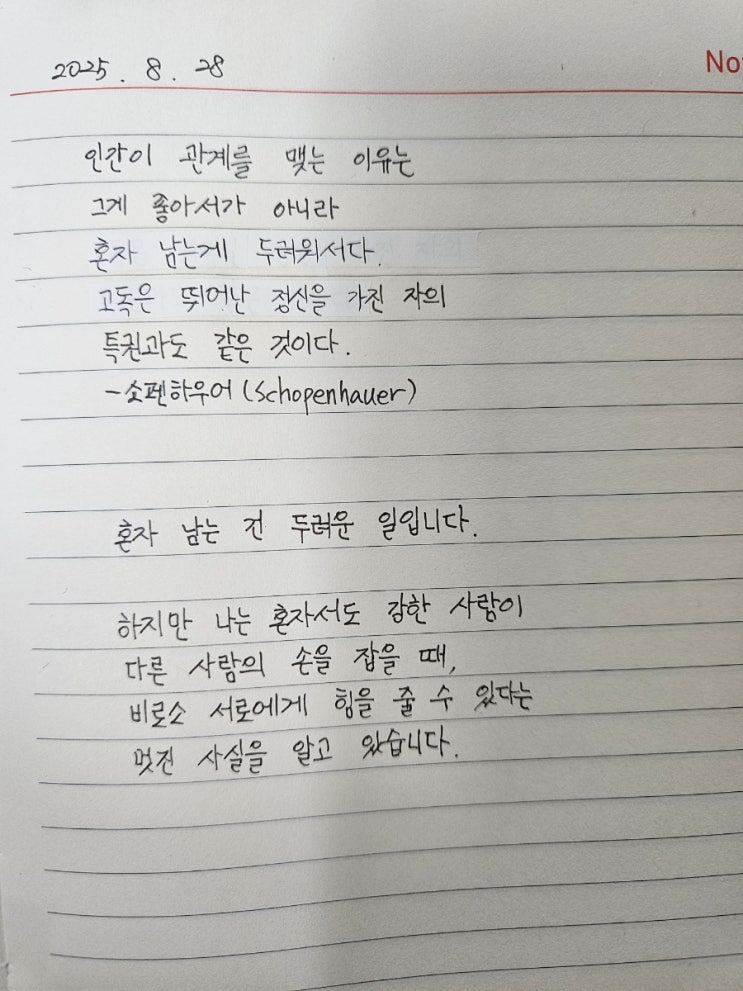 2025. 8. 28
인간이 관계를 맺는 이유는
그게 좋아서가 아니라
혼자 남는게 두려워서다.
고독은 뛰어난 정신을 가진 자의
특권과도 같은 것이다.
-쇼펜하우어 (Schopenhauer)
혼자 남는 건 두려운 일입니다.
하지만 나는 혼자서도 강한 사람이
다른 사람의 손을 잡을 때,
비로소 서로에게 힘을 줄 수 있다는
멋진 사실을 알고 있습니다.